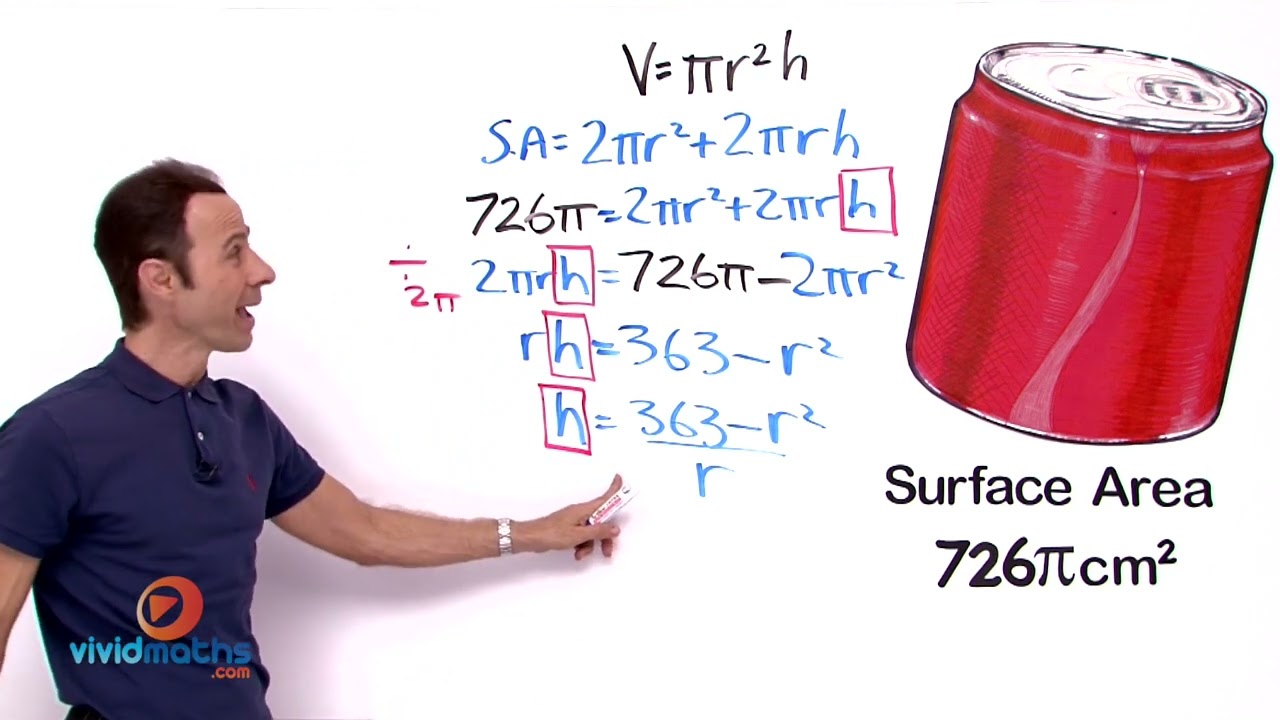 V=πr²h
S.A=2πr²+2πrh
726π=2πr²+2πrh
÷2π
2πrh=726π-2πr²
rh=363-r²
h=363-r²
r
Surface Area
726πcm²
vividmaths
.com